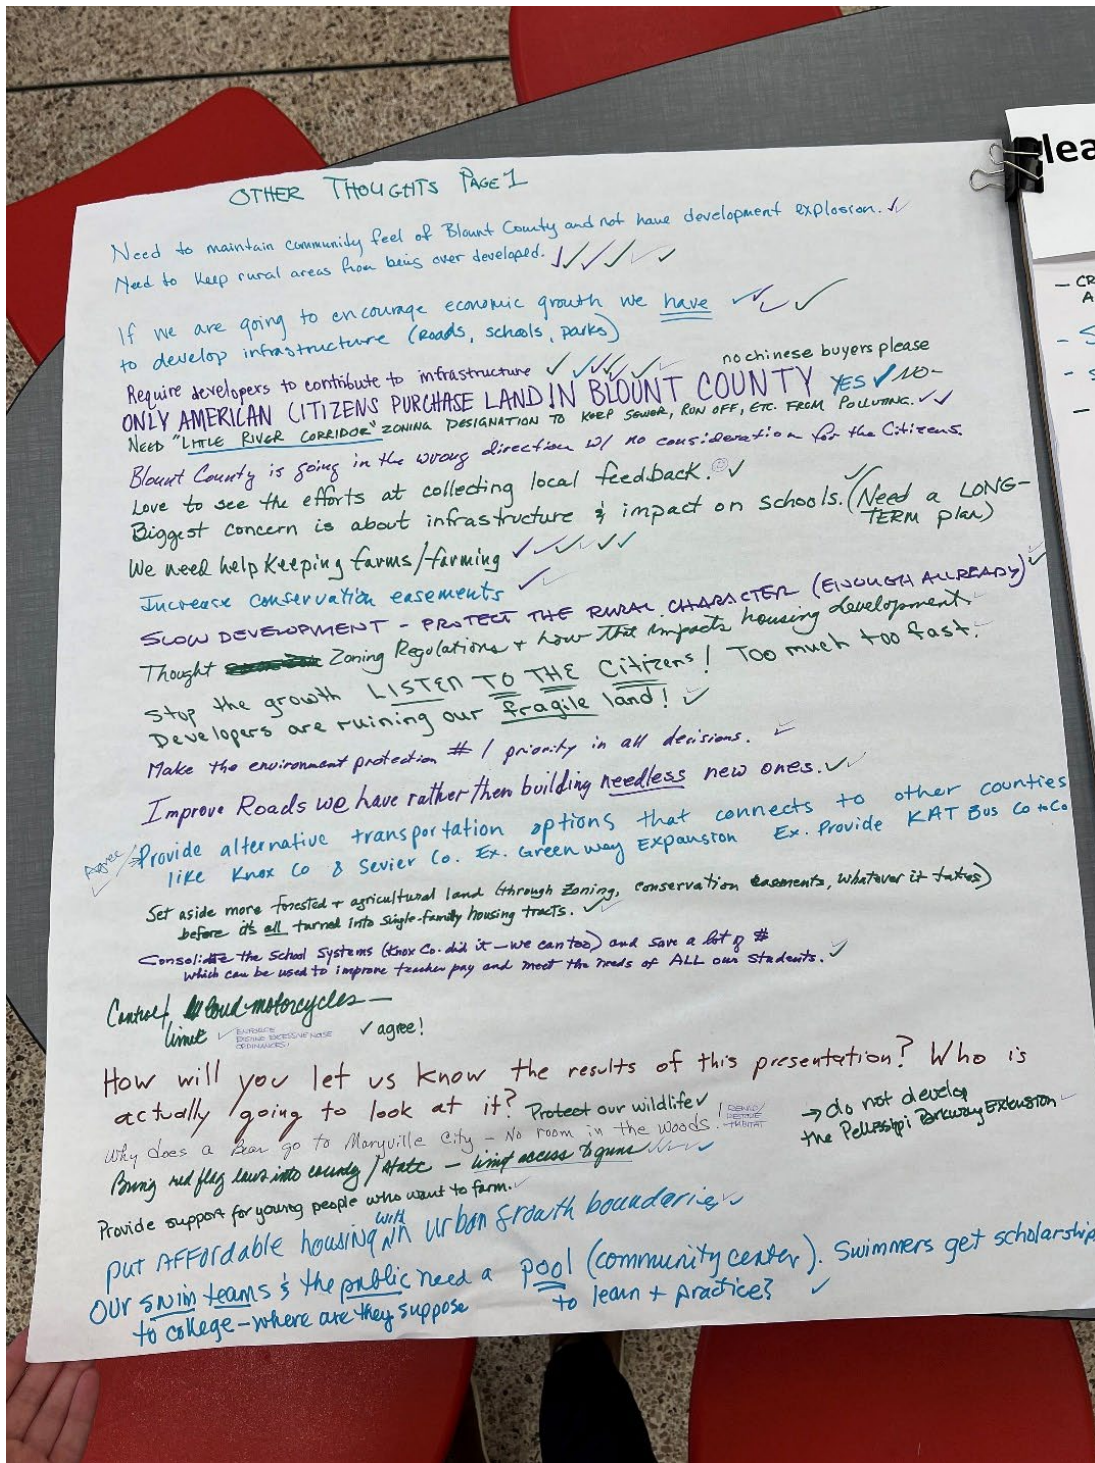 OTHER THOUGHTS PAGE 1
Need to maintain community feel of Blount County and not have development explosion. ✓✓
Need to keep rural areas from being over developed. ✓✓✓✓✓✓
If we are going to encourage economic growth we have ✓✓✓
to develop infrastructure (Roads, schools, parks)
no chinese buyers please
Require developers to contribute to infrastructure ✓✓✓✓✓✓
ONLY AMERICAN CITIZENS PURCHASE LAND IN BLOUNT COUNTY YES ✓ NO-
NEED "LITTLE RIVER CORRIDOR" ZONING DESIGNATION TO KEEP SEWER, RUN OFF, ETC. FROM POLLUTING. ✓✓
Blount County is going in the wrong direction w/ no consideration for the Citizens.
Love to see the efforts at collecting local feedback. ☺✓
Biggest concern is about infrastructure & impact on schools. ✓✓ (Need a LONG-
TERM plan)
We need help keeping farms/farming ✓✓✓✓✓
Increase conservation easements ✓✓
SLOW DEVELOPMENT - PROTECT THE RURAL CHARACTER (ENOUGH ALLREADY) ✓✓
Thought Zoning Regulations + how that impacts housing development. ✓
Stop the growth LISTEN TO THE Citizens! Too much too fast. ✓
Developers are ruining our fragile land! ✓
Make the environment protection # 1 priority in all decisions. ✓
Improve Roads we have rather then building needless new ones. ✓✓
Agree ✓
Provide alternative transportation options that connects to other counties
like Knox Co & Sevier Co. Ex. Greenway Expansion Ex. Provide KAT Bus Co to Co
Set aside more forested + agricultural land (through zoning, conservation easments, whatever it takes)
before it's all turned into single-family housing tracts. ✓✓
Consolidate the School Systems (Knox Co. did it - we can too) and save a lot of #
which can be used to improve teacher pay and meet the needs of ALL our students. ✓✓
Control/ loud motorcycles —
limit ✓ ENFORCE
EXCESSIVE NOISE
ORDINANCES!
✓ agree!
How will you let us know the results of this presentation? Who is
actually going to look at it? Protect our wildlife ✓
Why does a Bear go to Maryville City - No room in the woods.
HABITAT
→ do not develop
the Pellissippi Parkway Extension ✓
Bring red flag laws into county/state - limit access to guns ✓✓✓✓
Provide support for young people who want to farm. ✓
put AFFORDABLE housing with in urban Growth boundaries ✓✓
Our swim teams & the public need a pool (community center). Swimmers get scholarship
to college - where are they suppose to learn + practice? ✓
lea
- CR
A
- S
- S
-